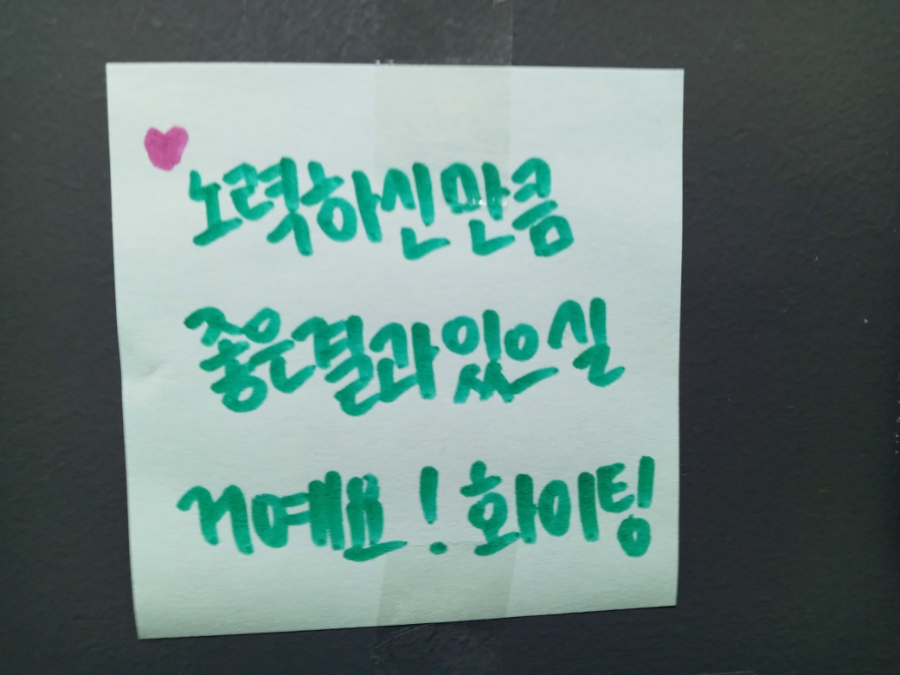 노력하신만큼
좋은결과있으실
거예요! 화이팅